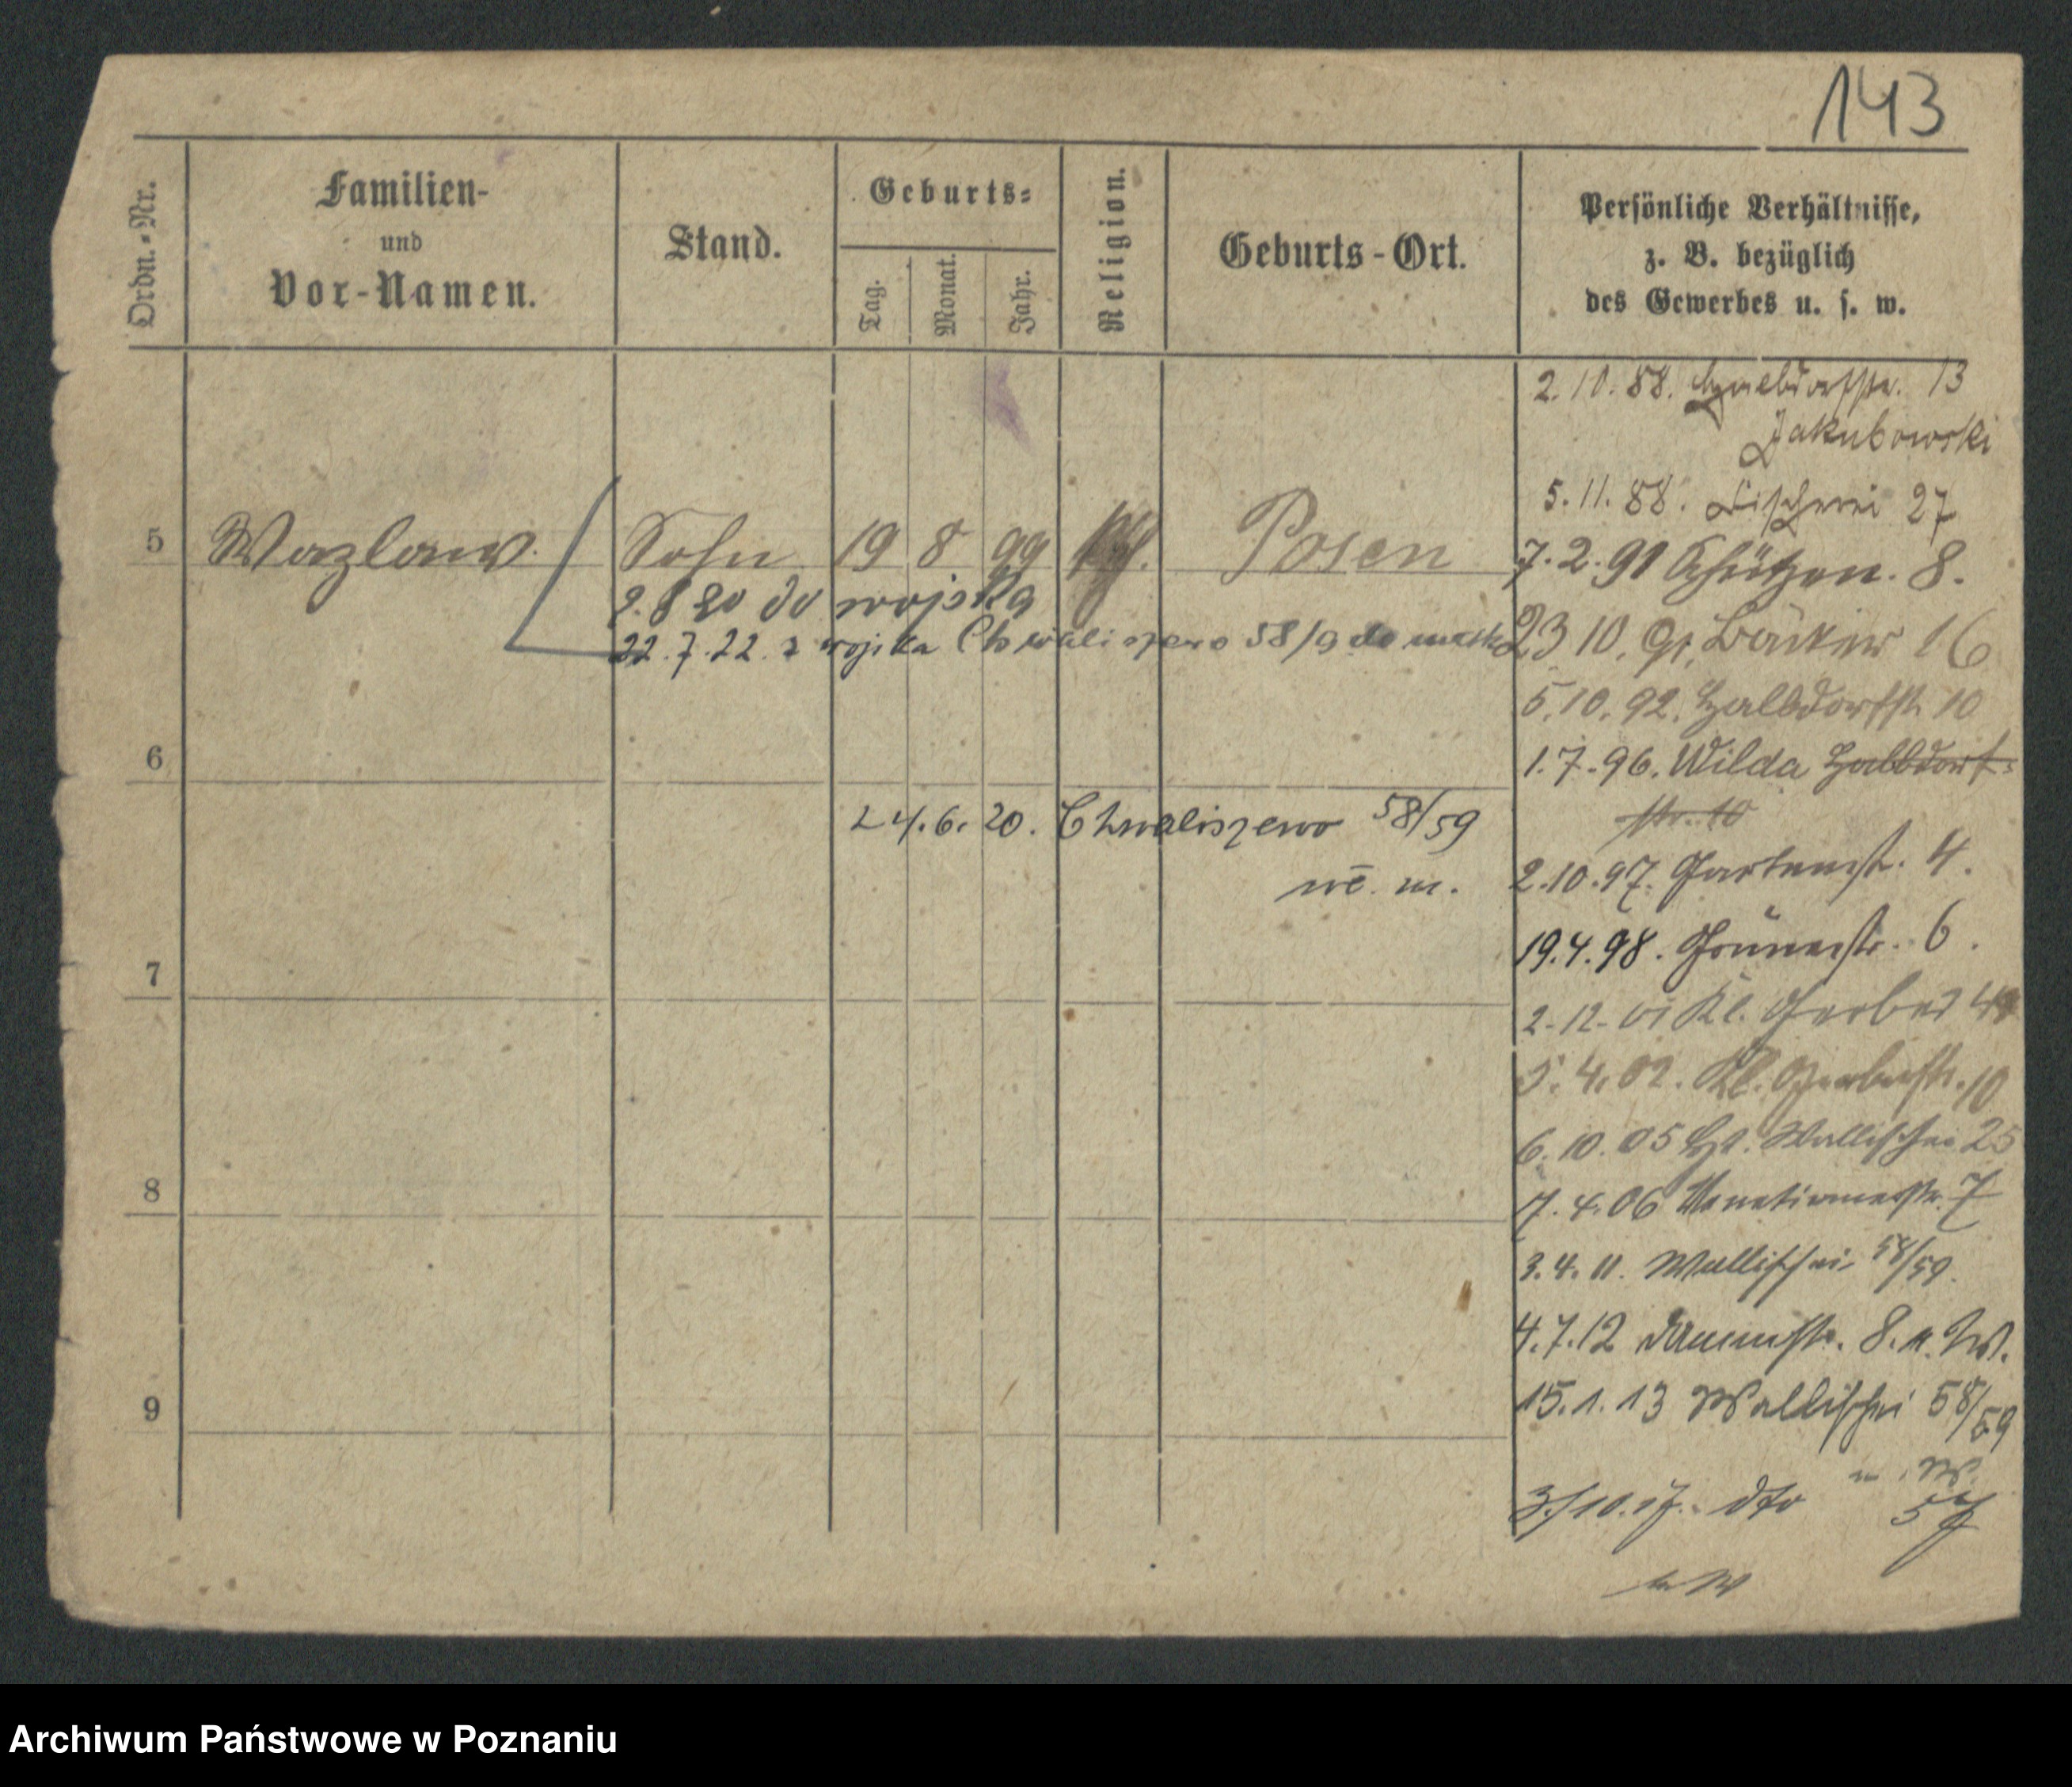 143
Ordn.-Nr.
Familien-
und
Vor-Namen.
Stand.
Geburts-
Tag.
Monat.
Jahr.
Religion.
Geburts-Ort.
Persönliche Verhältnisse,
z. B. bezüglich
des Gewerbes u. s. w.
2.10.88. Halbdorfstr. 13
Jakubowski
5.11.88. Fischerei 27
5 Wazlaw. Sohn 19 8 99 kath. Posen
7.2.91 Schützen. 8.
2.8 20 do wojska
22.7.22. z wojska Chwaliszewo 58/9 do matki
23 10. 91. Bäcker 16
5.10.92. Halbdorfstr 10
6
1.7.96. Wilda Halbdorf-
str. 10
24.6.20. Chwaliszewo 58/59
m.
2.10.97. Gartenstr. 4.
19.4.98. Grünestr. 6.
7
2.12.01 Kl. Gerber 4
5.4.02. Kl. Gerberstr. 10
6.10.05 Wallischei 25
8
7.4.06 Venetianerstr. 7
3.4.11. Wallischei 58/59.
4.7.12 Dammstr. 8. u. W.
15.1.13 Wallischei 58/59
9
u. W.
3/10.17. dto 57
u W
Archiwum Państwowe w Poznaniu